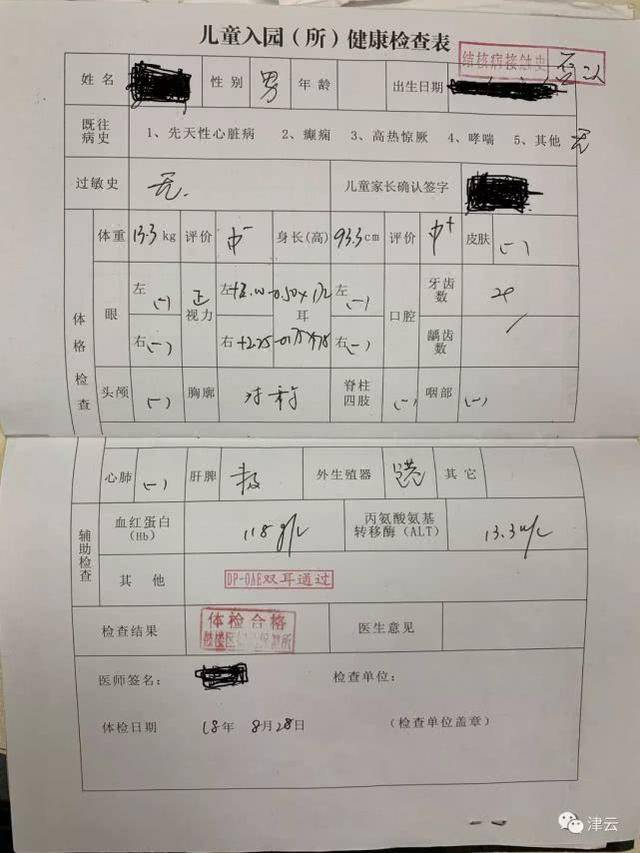 儿童入园（所）健康检查表
结核病接触史 否
姓名 性别 男 年龄 出生日期
既往病史 1、先天性心脏病 2、癫痫 3、高热惊厥 4、哮喘 5、其他 无
过敏史 无. 儿童家长确认签字
体格检查
体重 13.3 kg 评价 中- 身长(高) 93.3 cm 评价 中+ 皮肤 (-)
眼 左 (-) 视力 左 耳 左 (-) 口腔 牙齿数
右 (-) 右 +2.75 右 (-) 龋齿数 /
头颅 (-) 胸廓 对称 脊柱四肢 (-) 咽部 (-)
心肺 (-) 肝脾 外生殖器 其它
辅助检查
血红蛋白(Hb) 118 g/L 丙氨酸氨基转移酶(ALT) 13.3 u/L
其他 DP-OAE双耳通过
检查结果 体检合格 医生意见
医师签名： 检查单位：
体检日期 18年 8月28日 (检查单位盖章)
津云